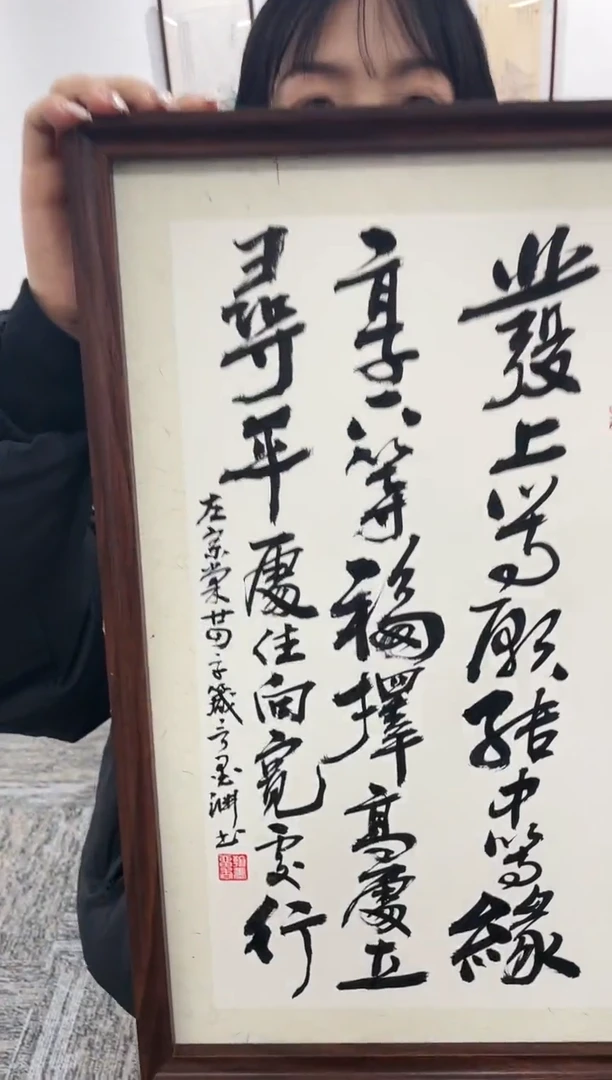 發上等願結中等緣
享下等福擇高處立
尋平處住向寬處行
左宗棠廿四字箴言墨渊书